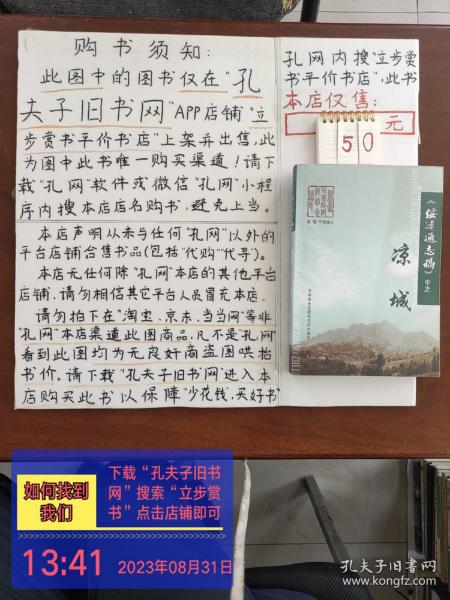 购书须知:
此图中的图书仅在“孔
夫子旧书网”APP店铺“立
步赏书平价书店”上架并出售,此
为图中此书唯一购买渠道!请下
载“孔网”软件或微信“孔网”小程
序内搜本店店名购书,避免上当。
本店声明从未与任何“孔网”以外的
平台店铺合售书品(包括“代购”“代寻)。
本店无任何除“孔网”本店的其他平台
店铺,请勿相信其它平台人员冒充本店。
请勿拍下在“淘宝、京东、当当网”等非
“孔网”本店渠道此图商品,凡不是“孔网”
看到此图均为无良奸商盗图哄抬
书价。请下载“孔夫子旧书网”进入本
店购买此书以保障“少花钱,买好书”
孔网内搜“立步赏
书平价书店”,此书
本店仅售:
50
元
《绥远通志稿》中之
凉城
如何找到
我们
下载“孔夫子旧书
网”搜索“立步赏
书”点击店铺即可
13:41
2023年08月31日
孔夫子旧书网
www.kongfz.com